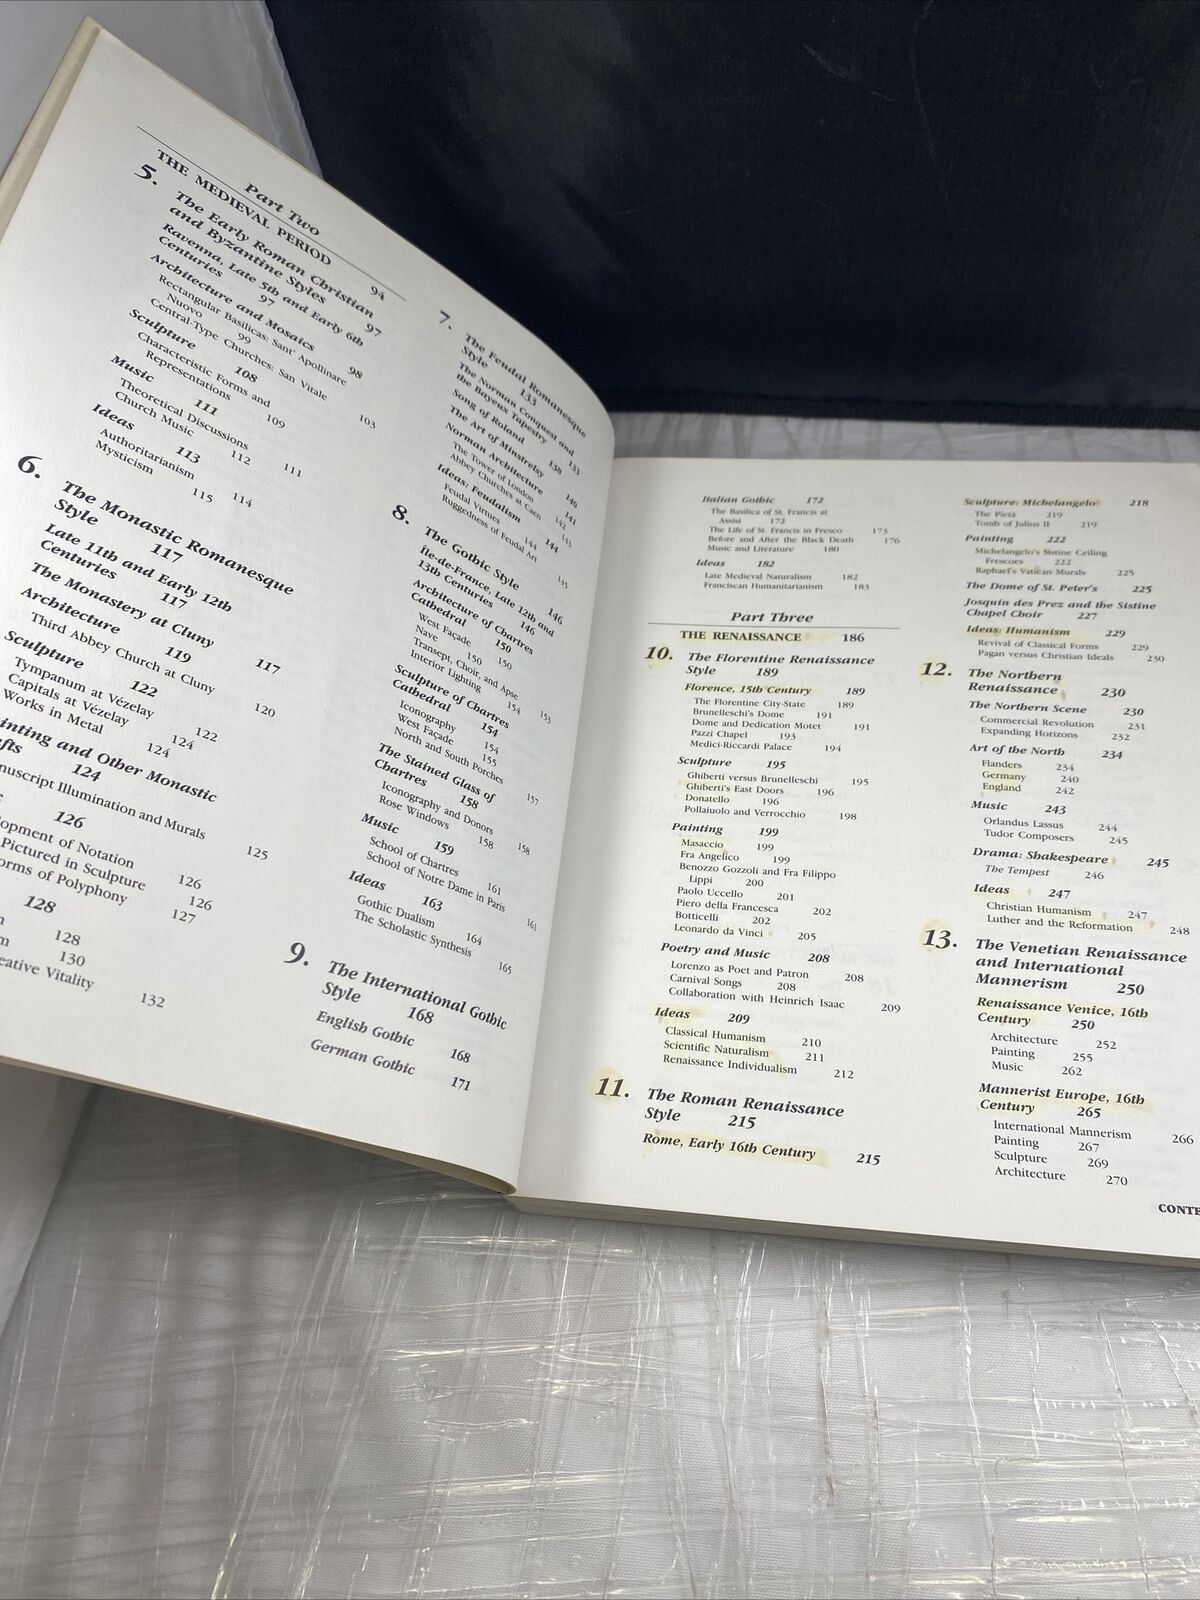 Part Two
THE MEDIEVAL PERIOD 94
5. The Early Roman Christian
and Byzantine Styles 97
Ravenna, Late 5th and Early 6th
Centuries 97
Architecture and Mosaics 98
Rectangular Basilicas: Sant' Apollinare
Nuovo 99
Central-Type Churches: San Vitale 103
Sculpture 108
Characteristic Forms and
Representations 109
Music 111
Theoretical Discussions 111
Church Music 112
Ideas 113
Authoritarianism 114
Mysticism 115
6. The Monastic Romanesque
Style 117
Late 11th and Early 12th
Centuries 117
The Monastery at Cluny 117
Architecture 119
Third Abbey Church at Cluny 120
Sculpture 122
Tympanum at Vézelay 122
Capitals at Vézelay 124
Works in Metal 124
inting and Other Monastic
afts 124
nuscript Illumination and Murals 125
126
opment of Notation 126
Pictured in Sculpture 126
orms of Polyphony 127
128
128
m 130
eative Vitality 132
7. The Feudal Romanesque
Style 133
The Norman Conquest and
the Bayeux Tapestry 133
Song of Roland 138
The Art of Minstrelsy 140
Norman Architecture 141
The Tower of London 142
Abbey Churches at Caen 143
Ideas: Feudalism 144
Feudal Virtues 144
Ruggedness of Feudal Art 145
8. The Gothic Style 146
Île-de-France, Late 12th and
13th Centuries 146
Architecture of Chartres
Cathedral 150
West Façade 150
Nave 150
Transept, Choir, and Apse 153
Interior Lighting 154
Sculpture of Chartres
Cathedral 154
Iconography 154
West Façade 155
North and South Porches 157
The Stained Glass of
Chartres 158
Iconography and Donors 158
Rose Windows 158
Music 159
School of Chartres 161
School of Notre Dame in Paris 161
Ideas 163
Gothic Dualism 164
The Scholastic Synthesis 165
9. The International Gothic
Style 168
English Gothic 168
German Gothic 171
Italian Gothic 172
The Basilica of St. Francis at
Assisi 172
The Life of St. Francis in Fresco 173
Before and After the Black Death 176
Music and Literature 180
Ideas 182
Late Medieval Naturalism 182
Franciscan Humanitarianism 183
Part Three
THE RENAISSANCE 186
10. The Florentine Renaissance
Style 189
Florence, 15th Century 189
The Florentine City-State 189
Brunelleschi's Dome 191
Dome and Dedication Motet 191
Pazzi Chapel 193
Medici-Riccardi Palace 194
Sculpture 195
Ghiberti versus Brunelleschi 195
Ghiberti's East Doors 196
Donatello 196
Pollaiuolo and Verrocchio 198
Painting 199
Masaccio 199
Fra Angelico 199
Benozzo Gozzoli and Fra Filippo
Lippi 200
Paolo Uccello 201
Piero della Francesca 202
Botticelli 202
Leonardo da Vinci 205
Poetry and Music 208
Lorenzo as Poet and Patron 208
Carnival Songs 208
Collaboration with Heinrich Isaac 209
Ideas 209
Classical Humanism 210
Scientific Naturalism 211
Renaissance Individualism 212
11. The Roman Renaissance
Style 215
Rome, Early 16th Century 215
Sculpture: Michelangelo 218
The Pietà 219
Tomb of Julius II 219
Painting 222
Michelangelo's Sistine Ceiling
Frescoes 222
Raphael's Vatican Murals 225
The Dome of St. Peter's 225
Josquin des Prez and the Sistine
Chapel Choir 227
Ideas: Humanism 229
Revival of Classical Forms 229
Pagan versus Christian Ideals 230
12. The Northern
Renaissance 230
The Northern Scene 230
Commercial Revolution 231
Expanding Horizons 232
Art of the North 234
Flanders 234
Germany 240
England 242
Music 243
Orlandus Lassus 244
Tudor Composers 245
Drama: Shakespeare 245
The Tempest 246
Ideas 247
Christian Humanism 247
Luther and the Reformation 248
13. The Venetian Renaissance
and International
Mannerism 250
Renaissance Venice, 16th
Century 250
Architecture 252
Painting 255
Music 262
Mannerist Europe, 16th
Century 265
International Mannerism 266
Painting 267
Sculpture 269
Architecture 270
CONTE